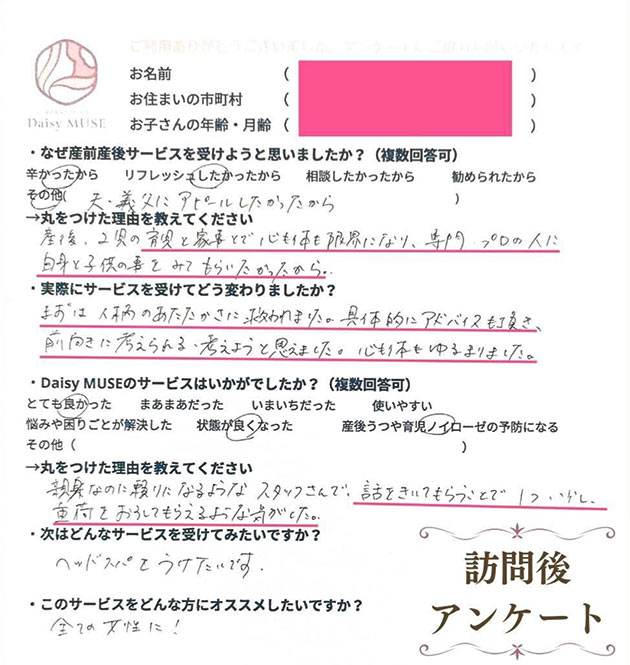 Daisy MUSE
お名前 (
)
お住まいの市町村 (
)
お子さんの年齢・月齢 (
)
・なぜ産前産後サービスを受けようと思いましたか？（複数回答可）
辛かったから リフレッシュしたかったから 相談したかったから 勧められたから
その他( 夫・義父にアピールしたかったから )
→丸をつけた理由を教えてください
産後、2児の育児と家事とで心も体も限界になり、専門 プロの人に
自身と子供の事をみてもらいたかったから。
・実際にサービスを受けてどう変わりましたか？
まずは人柄のあたたかさに救われました。具体的にアドバイスも頂き、
前向きに考えられる・考えようと思えました。心も体もゆるまりました。
・Daisy MUSEのサービスはいかがでしたか？（複数回答可）
とても良かった まあまあだった いまいちだった 使いやすい
悩みや困りごとが解決した 状態が良くなった 産後うつや育児ノイローゼの予防になる
その他（ ）
→丸をつけた理由を教えてください
親身なのに頼りになるような スタッフさんで、話をきいてもらうことで 1つ
重荷をおろしてもらえるような気がした。
・次はどんなサービスを受けてみたいですか？
ヘッドスパとうけたいです.
・このサービスをどんな方にオススメしたいですか？
全ての女性に！
訪問後
アンケート